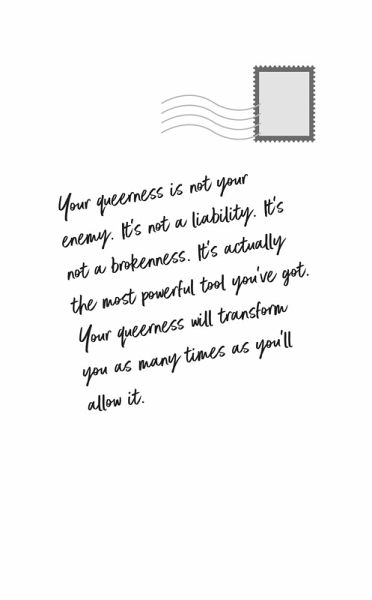 Your queerness is not your
enemy. It's not a liability. It's
not a brokenness. It's actually
the most powerful tool you've got.
Your queerness will transform
you as many times as you'll
allow it.